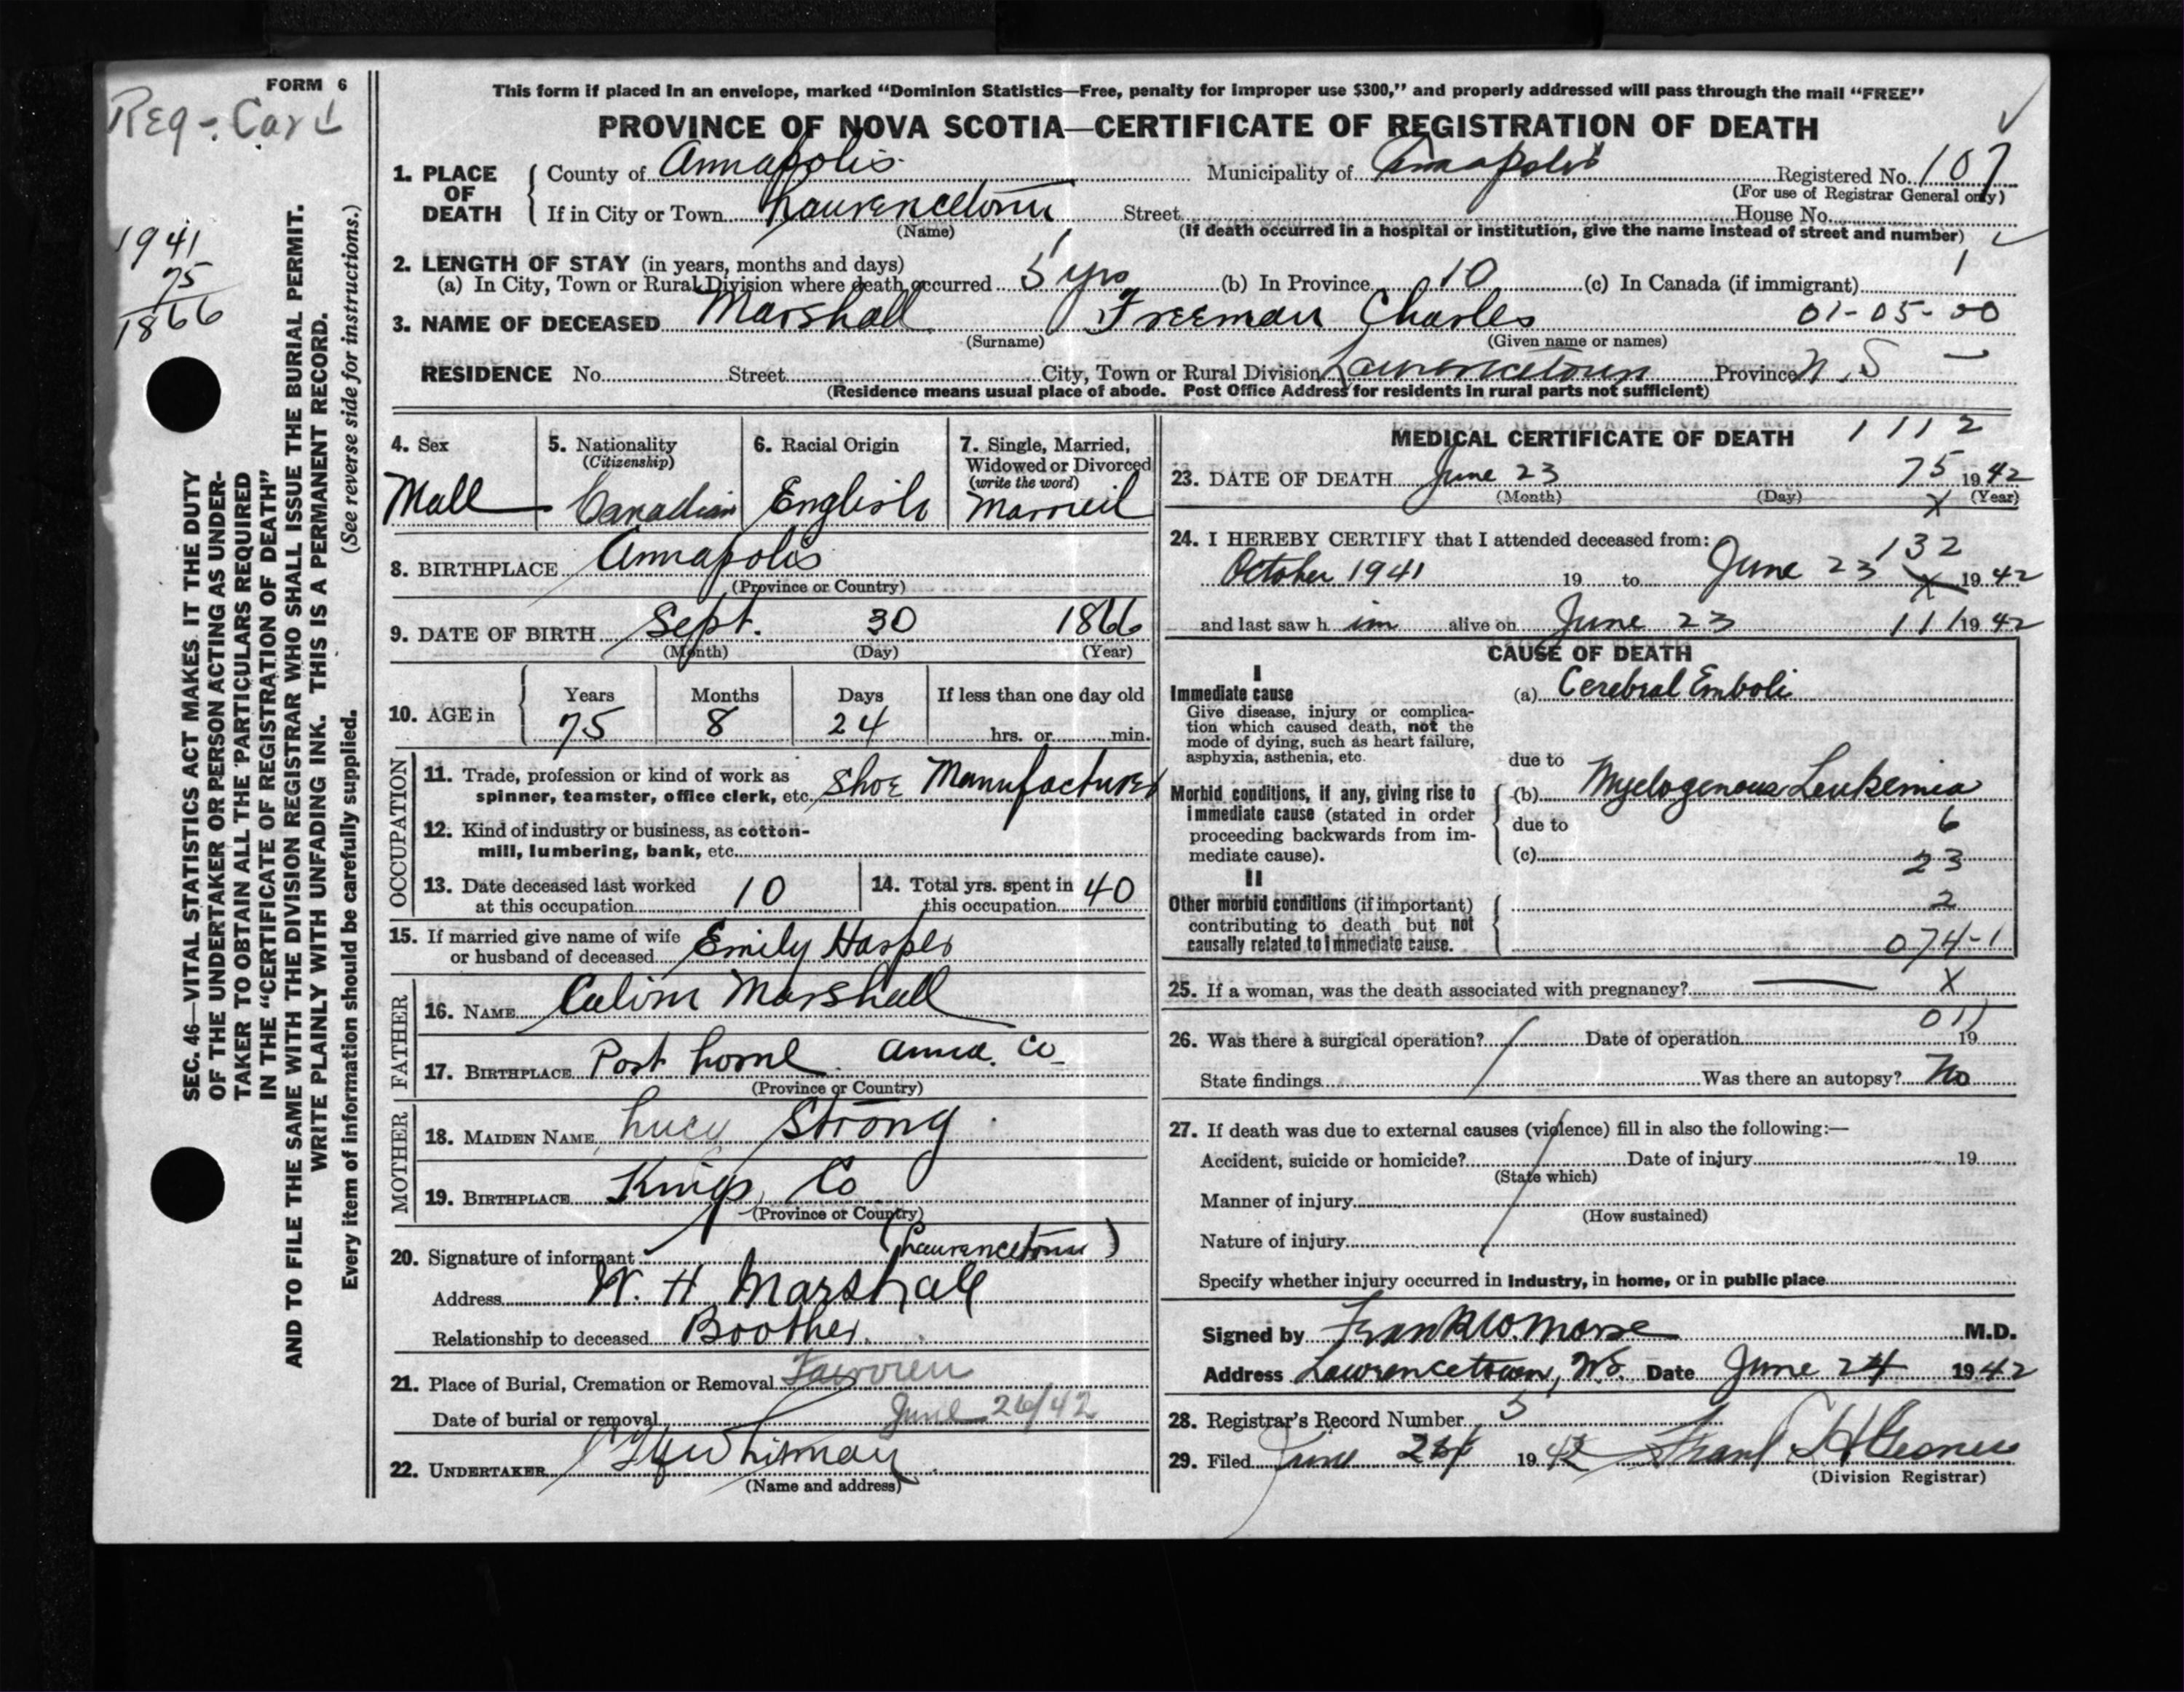 FORM 6
Reg - Card
1941
75
1866
SEC. 46—VITAL STATISTICS ACT MAKES IT THE DUTY
OF THE UNDERTAKER OR PERSON ACTING AS UNDER-
TAKER TO OBTAIN ALL THE PARTICULARS REQUIRED
IN THE "CERTIFICATE OF REGISTRATION OF DEATH"
AND TO FILE THE SAME WITH THE DIVISION REGISTRAR WHO SHALL ISSUE THE BURIAL PERMIT.
WRITE PLAINLY WITH UNFADING INK. THIS IS A PERMANENT RECORD.
Every item of information should be carefully supplied. (See reverse side for instructions.)
This form if placed in an envelope, marked "Dominion Statistics—Free, penalty for improper use $300," and properly addressed will pass through the mail "FREE"
PROVINCE OF NOVA SCOTIA—CERTIFICATE OF REGISTRATION OF DEATH
1. PLACE OF DEATH County of Annapolis Municipality of Annapolis Registered No. 107
(For use of Registrar General only)
If in City or Town Lawrencetown Street House No.
(Name) (If death occurred in a hospital or institution, give the name instead of street and number)
2. LENGTH OF STAY (in years, months and days)
(a) In City, Town or Rural Division where death occurred 5 yrs (b) In Province 10 (c) In Canada (if immigrant) 1
3. NAME OF DECEASED Marshall Freeman Charles 01-05-00
(Surname) (Given name or names)
RESIDENCE No. Street City, Town or Rural Division Lawrencetown Province N.S
(Residence means usual place of abode. Post Office Address for residents in rural parts not sufficient)
4. Sex 5. Nationality 6. Racial Origin 7. Single, Married,
(Citizenship) Widowed or Divorced
(write the word)
Male Canadian English Married
8. BIRTHPLACE Annapolis
(Province or Country)
9. DATE OF BIRTH Sept. 30 1866
(Month) (Day) (Year)
10. AGE in Years Months Days If less than one day old
75 8 24 hrs. or min.
OCCUPATION
11. Trade, profession or kind of work as
spinner, teamster, office clerk, etc. Shoe Manufacturer
12. Kind of industry or business, as cotton-
mill, lumbering, bank, etc.
13. Date deceased last worked 10 14. Total yrs. spent in 40
at this occupation this occupation
15. If married give name of wife Emily Harper
or husband of deceased
FATHER
16. NAME Calvin Marshall
17. BIRTHPLACE Port Lorne Anna. Co
(Province or Country)
MOTHER
18. MAIDEN NAME Lucy Strong
19. BIRTHPLACE Kings Co
(Province or Country)
20. Signature of informant (Lawrencetown)
Address W. H Marshall
Relationship to deceased Brother
21. Place of Burial, Cremation or Removal Fairview
Date of burial or removal June 26/42
22. UNDERTAKER Whitman
(Name and address)
MEDICAL CERTIFICATE OF DEATH 1112
23. DATE OF DEATH June 23 75 1942
(Month) (Day) X (Year)
24. I HEREBY CERTIFY that I attended deceased from: 132
October 1941 19 to June 23 X 1942
and last saw h im alive on June 23 111 1942
CAUSE OF DEATH
I
Immediate cause (a) Cerebral Emboli
Give disease, injury or complica-
tion which caused death, not the
mode of dying, such as heart failure,
asphyxia, asthenia, etc. due to
Morbid conditions, if any, giving rise to (b) Myelogenous Leukemia
immediate cause (stated in order due to 6
proceeding backwards from im-
mediate cause). (c) 23
II
Other morbid conditions (if important) 2
contributing to death but not
causally related to immediate cause. 074-1
25. If a woman, was the death associated with pregnancy? — X
011
26. Was there a surgical operation? / Date of operation 19
State findings Was there an autopsy? No
27. If death was due to external causes (violence) fill in also the following:—
Accident, suicide or homicide? Date of injury 19
(State which)
Manner of injury
(How sustained)
Nature of injury
Specify whether injury occurred in Industry, in home, or in public place
Signed by Frank W. Morse M.D.
Address Lawrencetown, N.S. Date June 24 1942
28. Registrar's Record Number 5
29. Filed June 1942 Frank H
(Division Registrar)